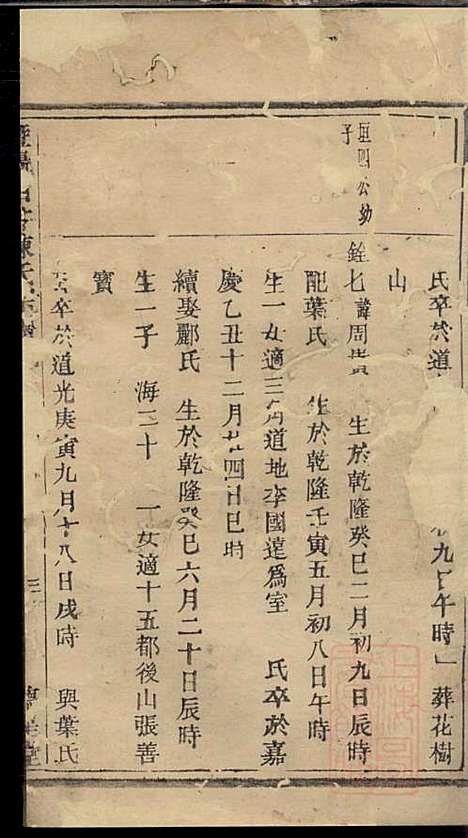 氏卒於道 九日午時 葬花樹
山
垣四公幼
子
銓七諱周貴 生於乾隆癸巳二月初九日辰時
配葉氏 生於乾隆壬寅五月初八日午時
生一女適三角道地李國達爲室 氏卒於嘉
慶乙丑十二月廿四日巳時
續娶酈氏 生於乾隆癸巳六月二十日辰時
生一子 海三十 一女適十五都後山張善
寶
卒於道光庚寅九月十八日戌時 與葉氏
陳氏宗譜
三
堂